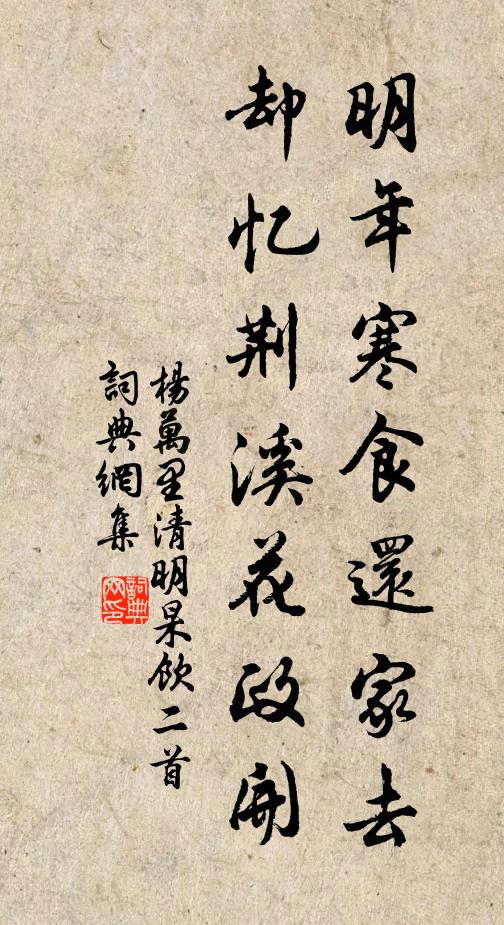 明年寒食還家去
却忆荆溪花政開
楊萬里清明杲飲二首
詞典網集
詞典網印